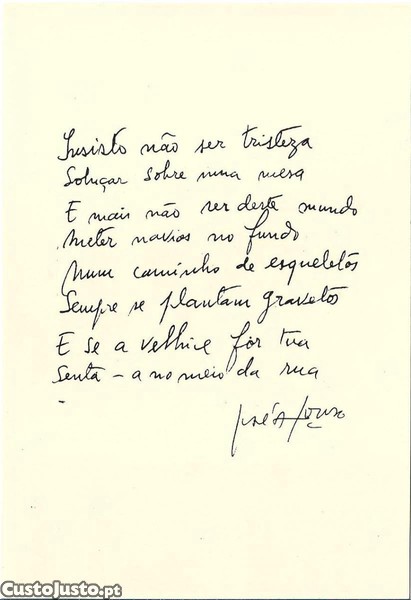 Insisto não ser tristeza
Soluçar sobre uma mesa
E mais não ser deste mundo
Meter navios no fundo
Num caminho de esqueletos
Sempre se plantam gravetos
E se a velhice for tua
Senta-a no meio da rua
José Afonso
CustoJusto.pt